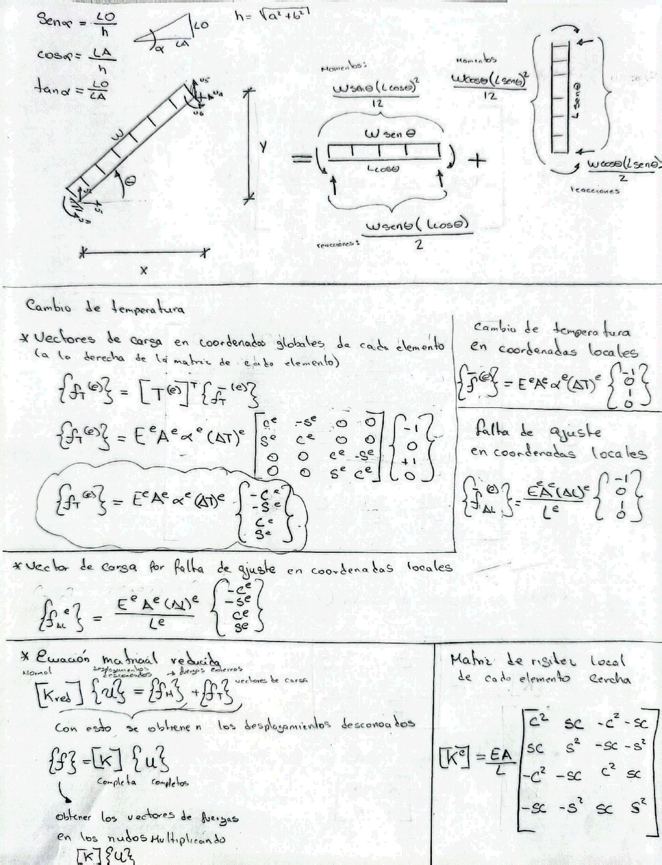 Senα = LO/h
h = √(a²+b²)
cosα = LA/h
tanα = LO/LA
LO
α
LA
W
θ
Y
X
=
Momentos:
Wsenθ(Lcosθ)²/12
W sen θ
Lcosθ
reacciones: Wsenθ(Lcosθ)/2
+
Momentos
Wcosθ(Lsenθ)²/12
Lsenθ
Wcosθ(Lsenθ)/2
reacciones
Cambio de temperatura
* Vectores de carga en coordenadas globales de cada elemento
(a la derecha de la matriz de cada elemento)
{f_T^(e)} = [T^(e)]^T {f̄_T^(e)}
{f_T^(e)} = E^e A^e α^e (ΔT)^e [c^e -s^e 0 0
s^e c^e 0 0
0 0 c^e -s^e
0 0 s^e c^e] {-1 0 +1 0}
{f_T^(e)} = E^e A^e α^e (ΔT)^e {-c^e -s^e c^e s^e}
Cambio de temperatura
en coordenadas locales
{f̄^(e)} = E^e A^e α^e (ΔT)^e {-1 0 1 0}
falta de ajuste
en coordenadas locales
{f̄_ΔL^(e)} = E^e A^e (ΔL)^e / L^e {-1 0 1 0}
* Vector de carga por falta de ajuste en coordenadas locales
{f_ΔL^e} = E^e A^e (ΔL)^e / L^e {-c^e -s^e c^e s^e}
* Ecuación matricial reducida
Normal
Desplazamientos desconocidos
→ fuerzas externas
[K_red] {u} = {f_N} + {f_T} vectores de carga
Con esto se obtienen los desplazamientos desconoados
{f} = [K] {u}
Completa completos
obtener los vectores de fuerzas
en los nudos Multiplicando
[K]{u}
Matriz de rigidez local
de cada elemento Cercha
[K̄^e] = EA/L [c² sc -c² -sc
sc s² -sc -s²
-c² -sc c² sc
-sc -s² sc s²]